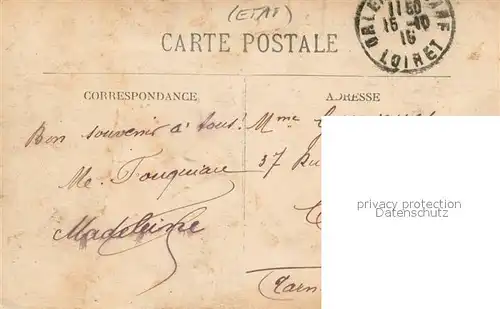 (ETAT)
CARTE POSTALE
11 50
15-10
16
LOIRET
CORRESPONDANCE
ADRESSE
Bon souvenir à tous!
Me. Fouquiau
Madeleine
Mme
37 Ru
Tarn
privacy protection
Datenschutz